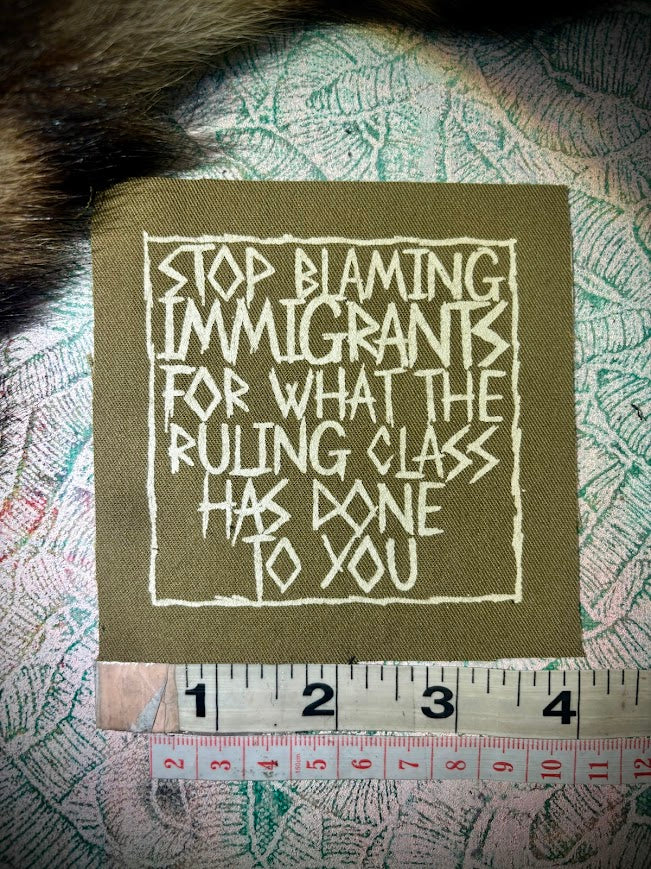 STOP BLAMING
IMMIGRANTS
FOR WHAT THE
RULING CLASS
HAS DONE
TO YOU
1 2 3 4
2 3 4 150cm 5 6 7 8 9 10 11 12